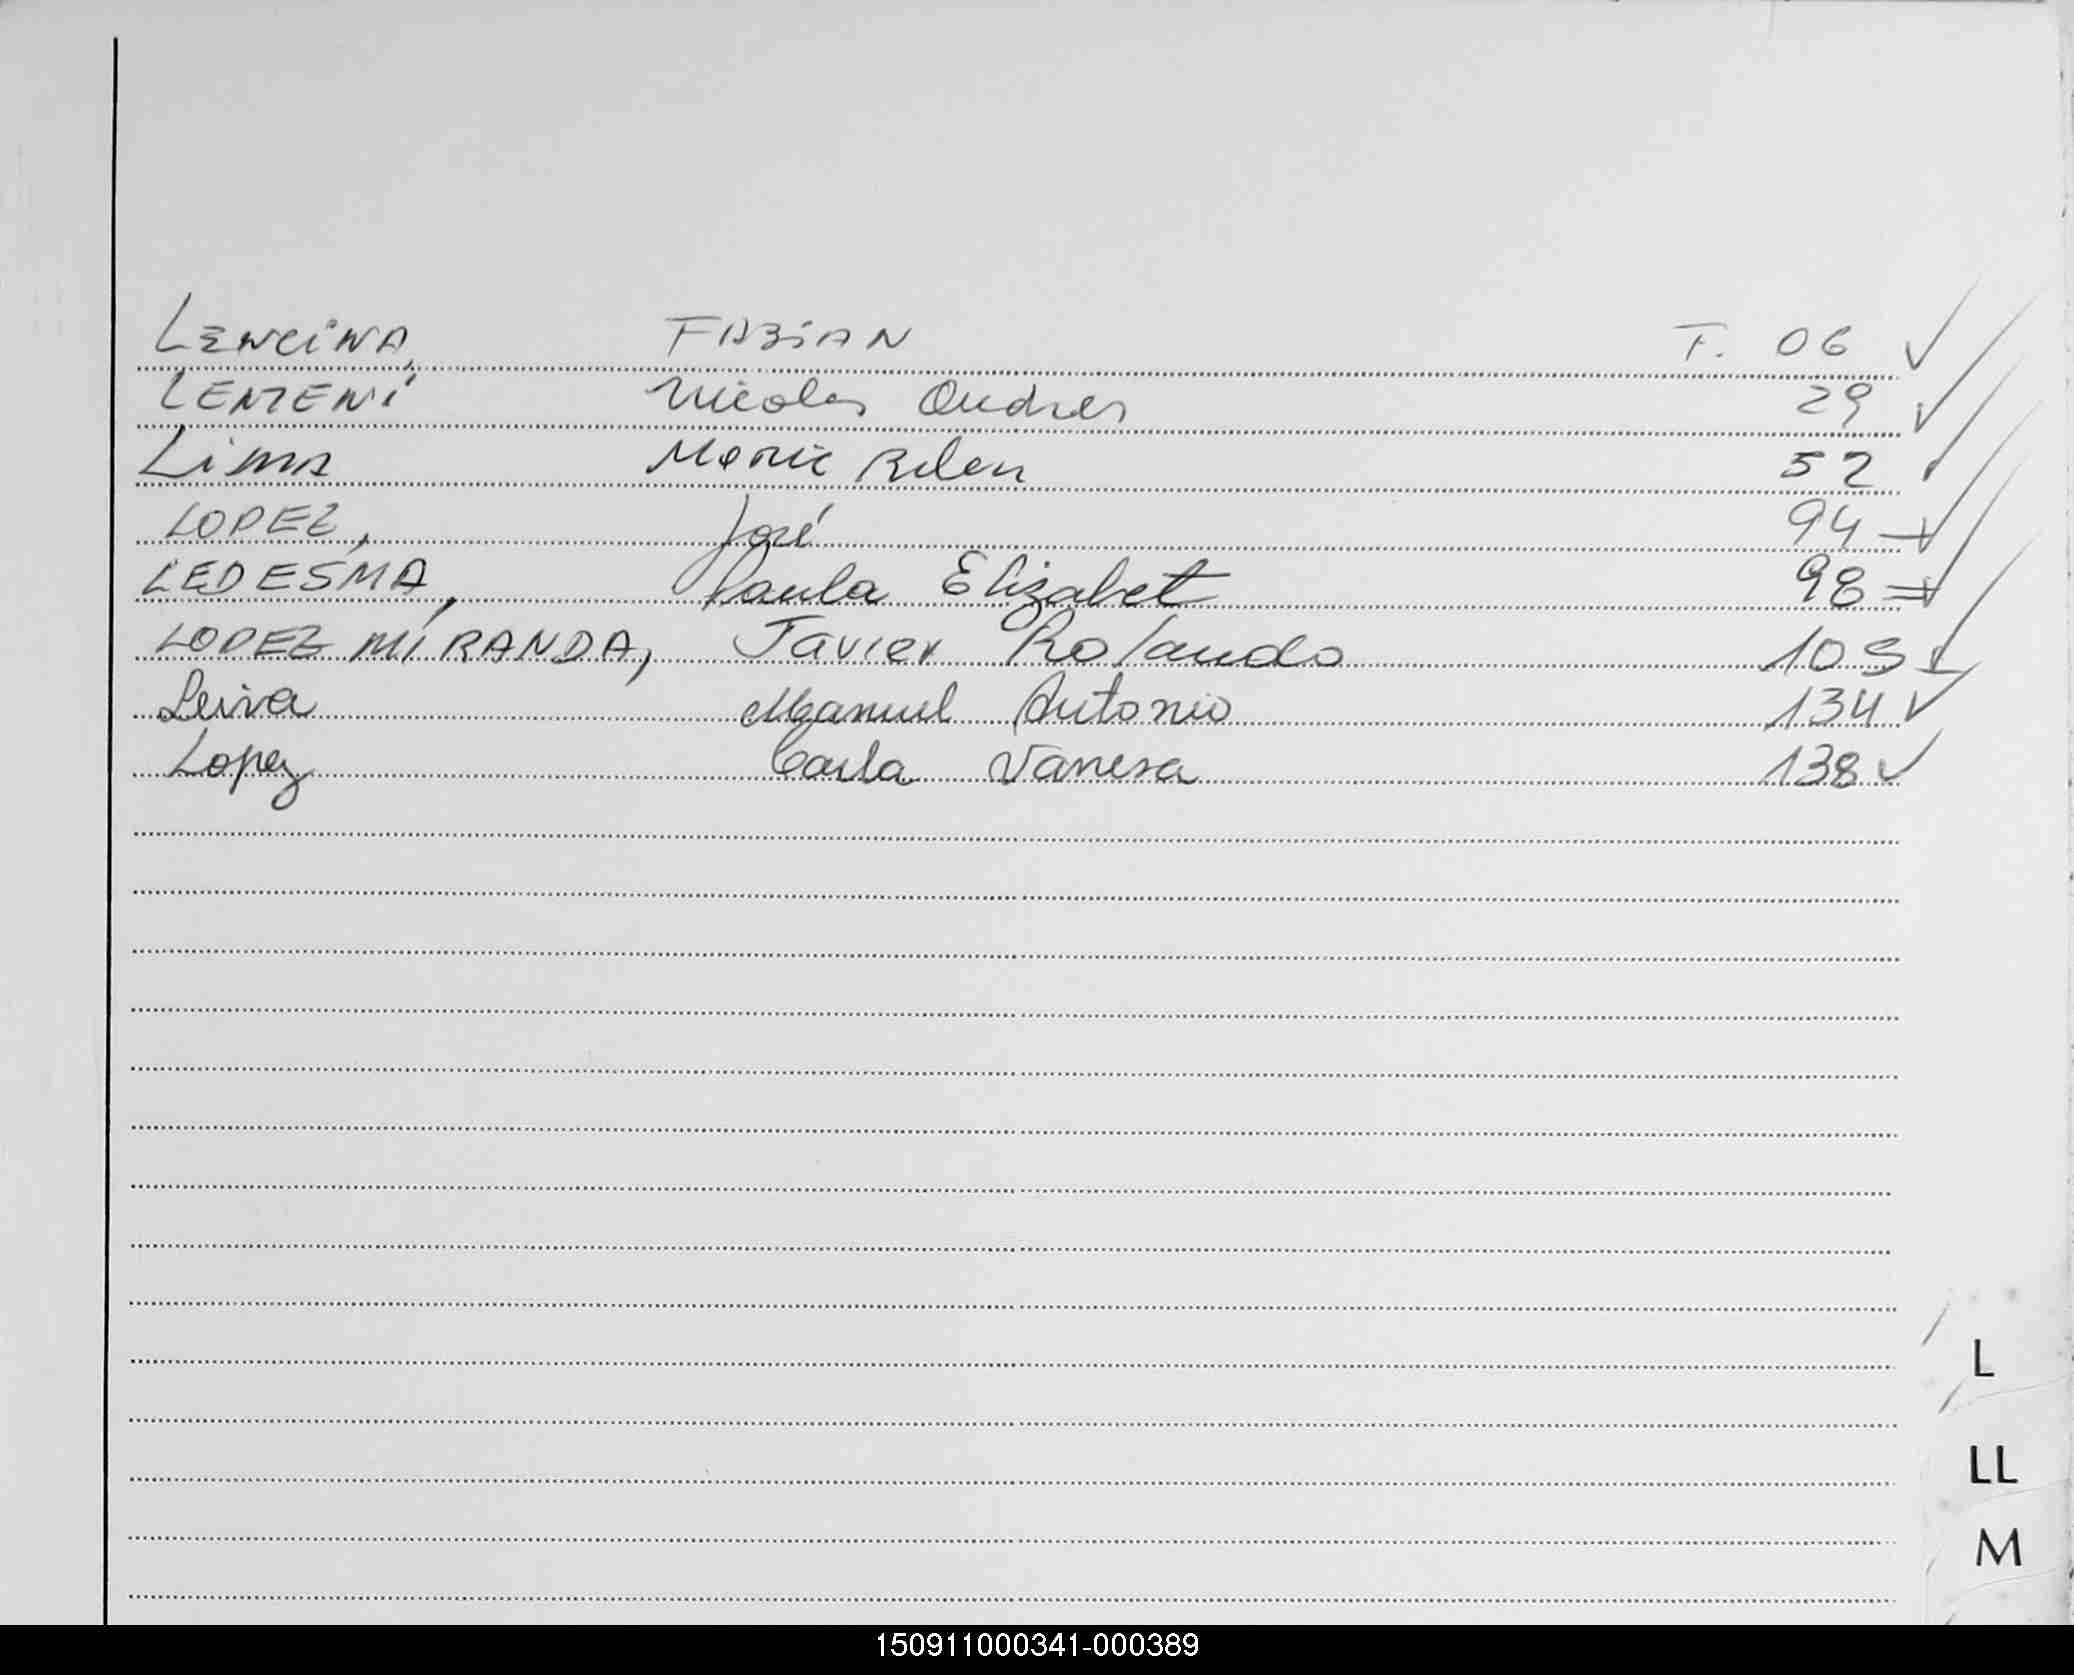 LENCINA, FABIAN T. 06
Nicolas Andres 29
Lima Maria Belen 52
LOPEZ, José 94
LEDESMA, Paula Elizabet 98
LOPEZ MIRANDA, Javier Rolando 105
Leiva Manuel Antonio 134
Lopez Carla Vanesa 138
L
LL
M
150911000341-000389